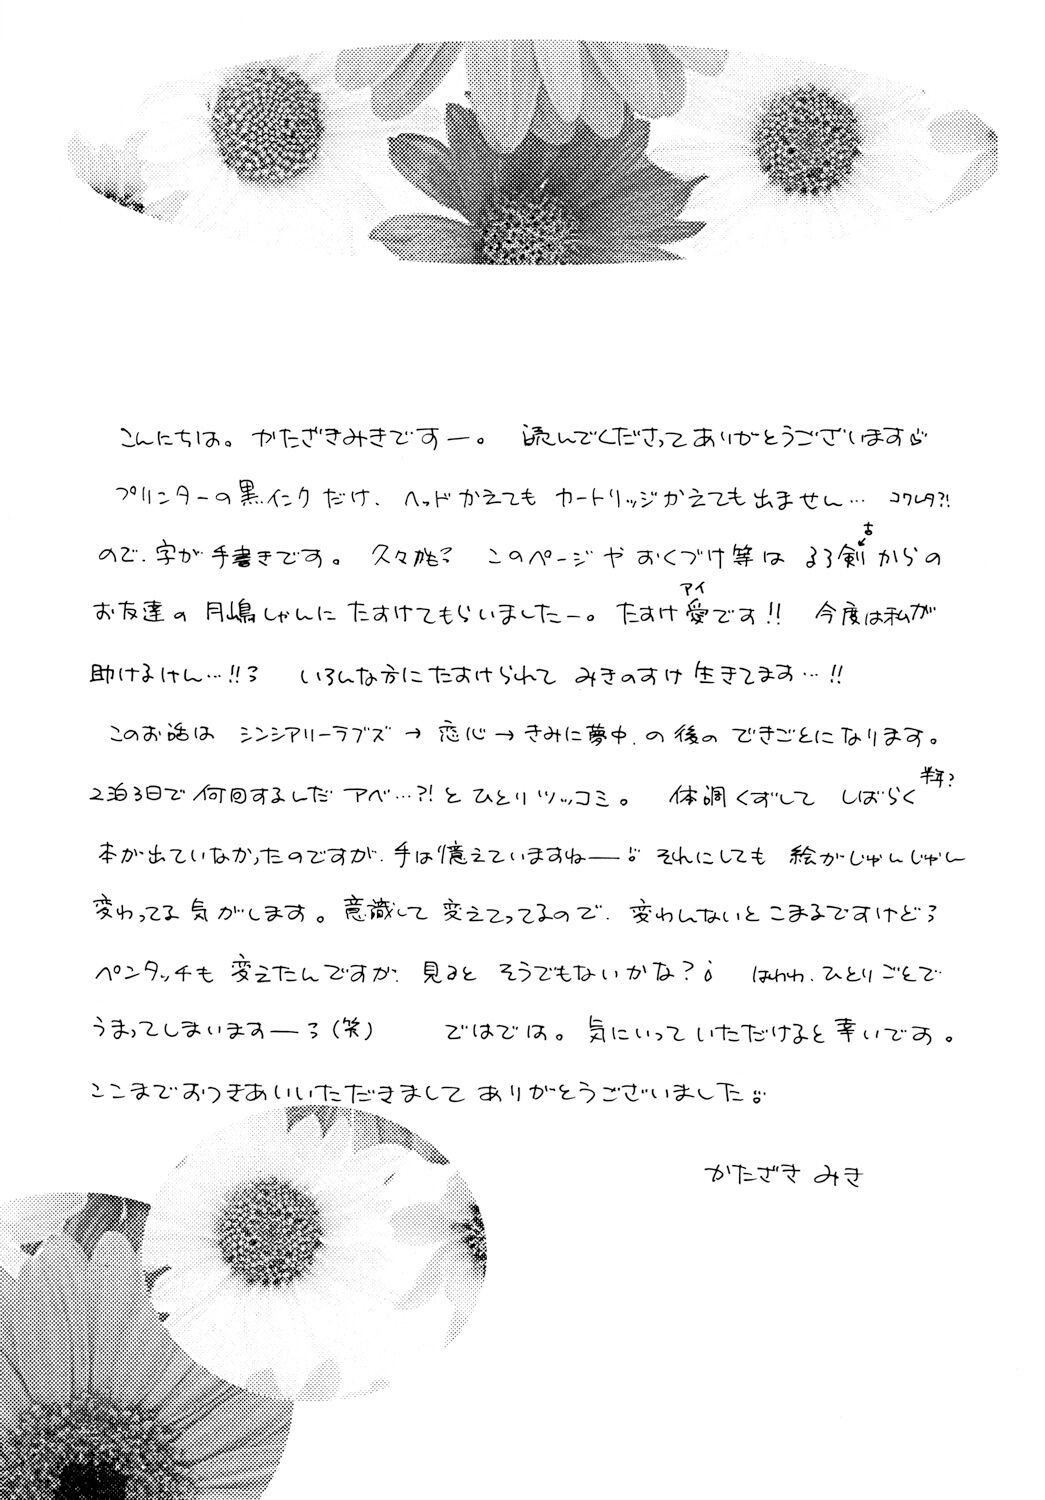 こんにちは。かたざきみきですー。読んでくださってありがとうございます
プリンターの黒インクだけ、ヘッドかえてもカートリッジかえても出ません… コワレタ?!
ので、字が手書きです。久々かも? このページやおくづけ等はるろ剣からの
古
お友達の月嶋しゃんにたすけてもらいましたー。たすけ愛です!! 今度は私が
アイ
助けるけん…!!ろ いろんな方にたすけられてみきのすけ生きてます…!!
このお話はシンシアリーラブズ→恋心→きみに夢中、の後のできごとになります。
2泊3日で何回するんだアベ…?!とひとりツッコミ。体調くずしてしばらく
半年?
本が出ていなかったのですが、手は憶えていますねー それにしても絵がじゃんじゃん
変わってる気がします。意識して変えてってるので、変わんないとこまるですけどろ
ペンタッチも変えたんですが、見るとそうでもないかな? はわわ、ひとりごとで
うまってしまいますーろ(笑) ではでは。気にいっていただけると幸いです。
ここまでおつきあいいただきましてありがとうございました
かたざき みき